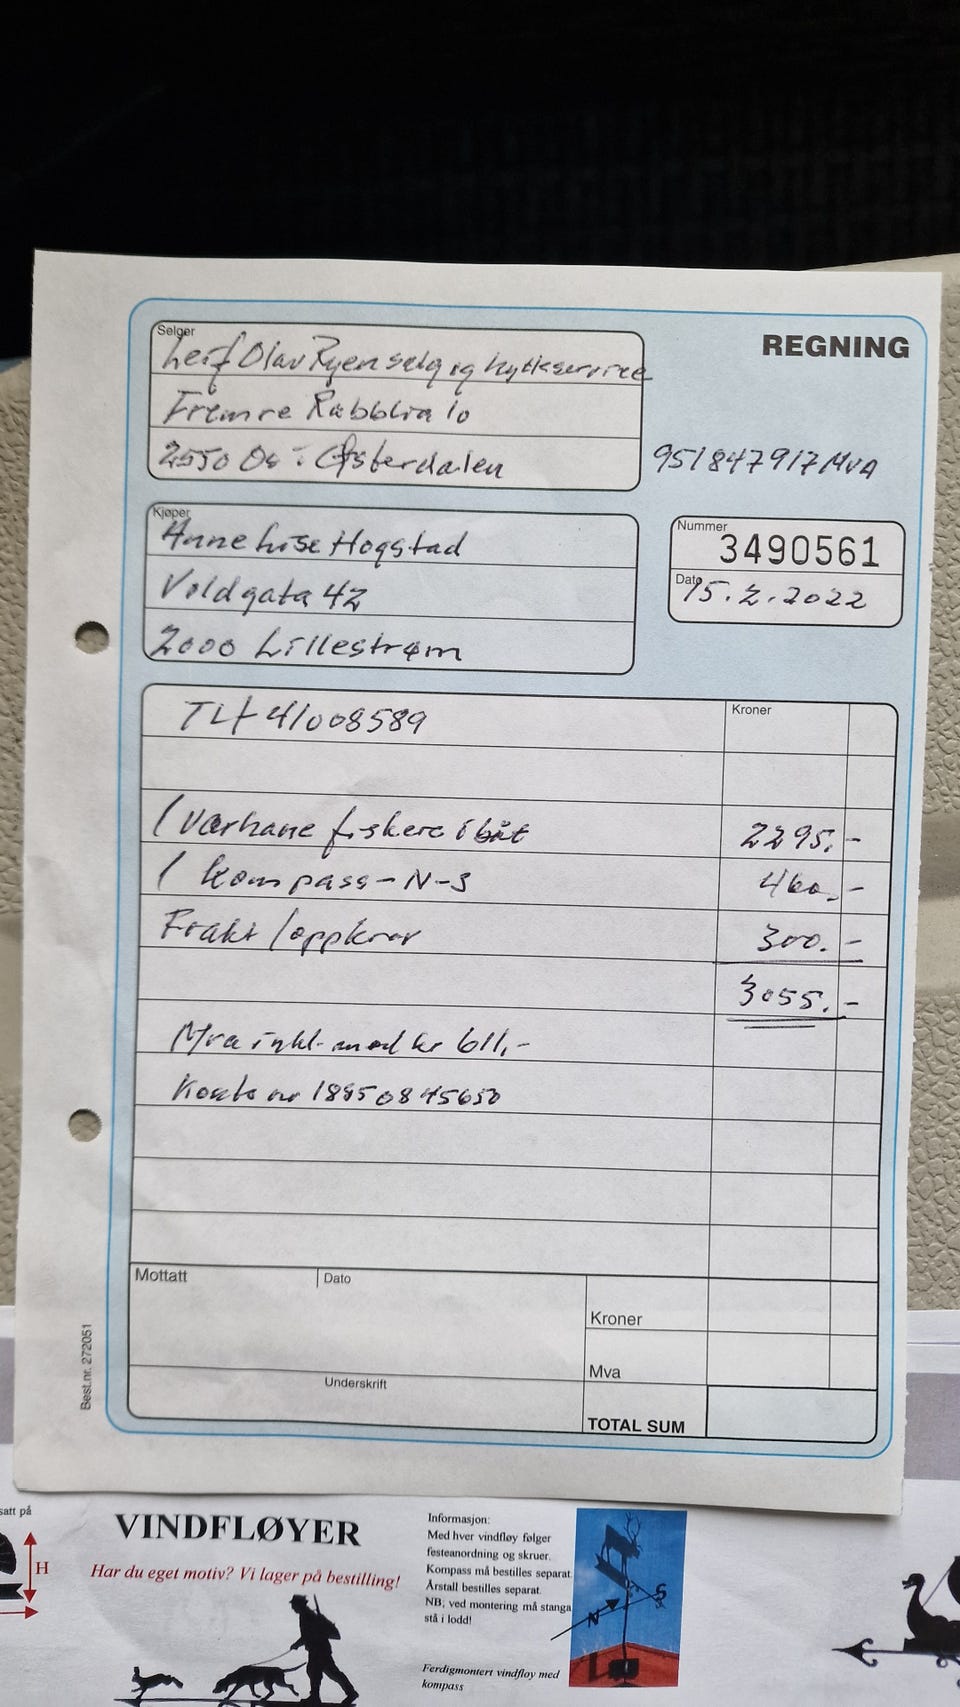 REGNING
Selger
Leif Olav Ryen salg og hytteservice
Fremre Rabblia 10
2550 Os i Østerdalen
951847917 MVA
Kjøper
Anne Lise Hogstad
Voldgata 42
2000 Lillestrøm
Nummer
3490561
Dato
15.2.2022
Kroner
Tlf 41008589
1 Værhane fiskere i båt 2295.-
1 Kompass-N-S 460.-
Frakt/oppkrav 300.-
3055.-
Mva inkl. med kr 611,-
Konto nr
Mottatt
Dato
Underskrift
Kroner
Mva
TOTAL SUM
Best.nr. 272051
satt på
H
VINDFLØYER
Har du eget motiv? Vi lager på bestilling!
Informasjon:
Med hver vindfløy følger
festeanordning og skruer.
Kompass må bestilles separat.
Årstall bestilles separat.
NB, ved montering må stanga
stå i lodd!
Ferdigmontert vindfløy med
kompass
N
S